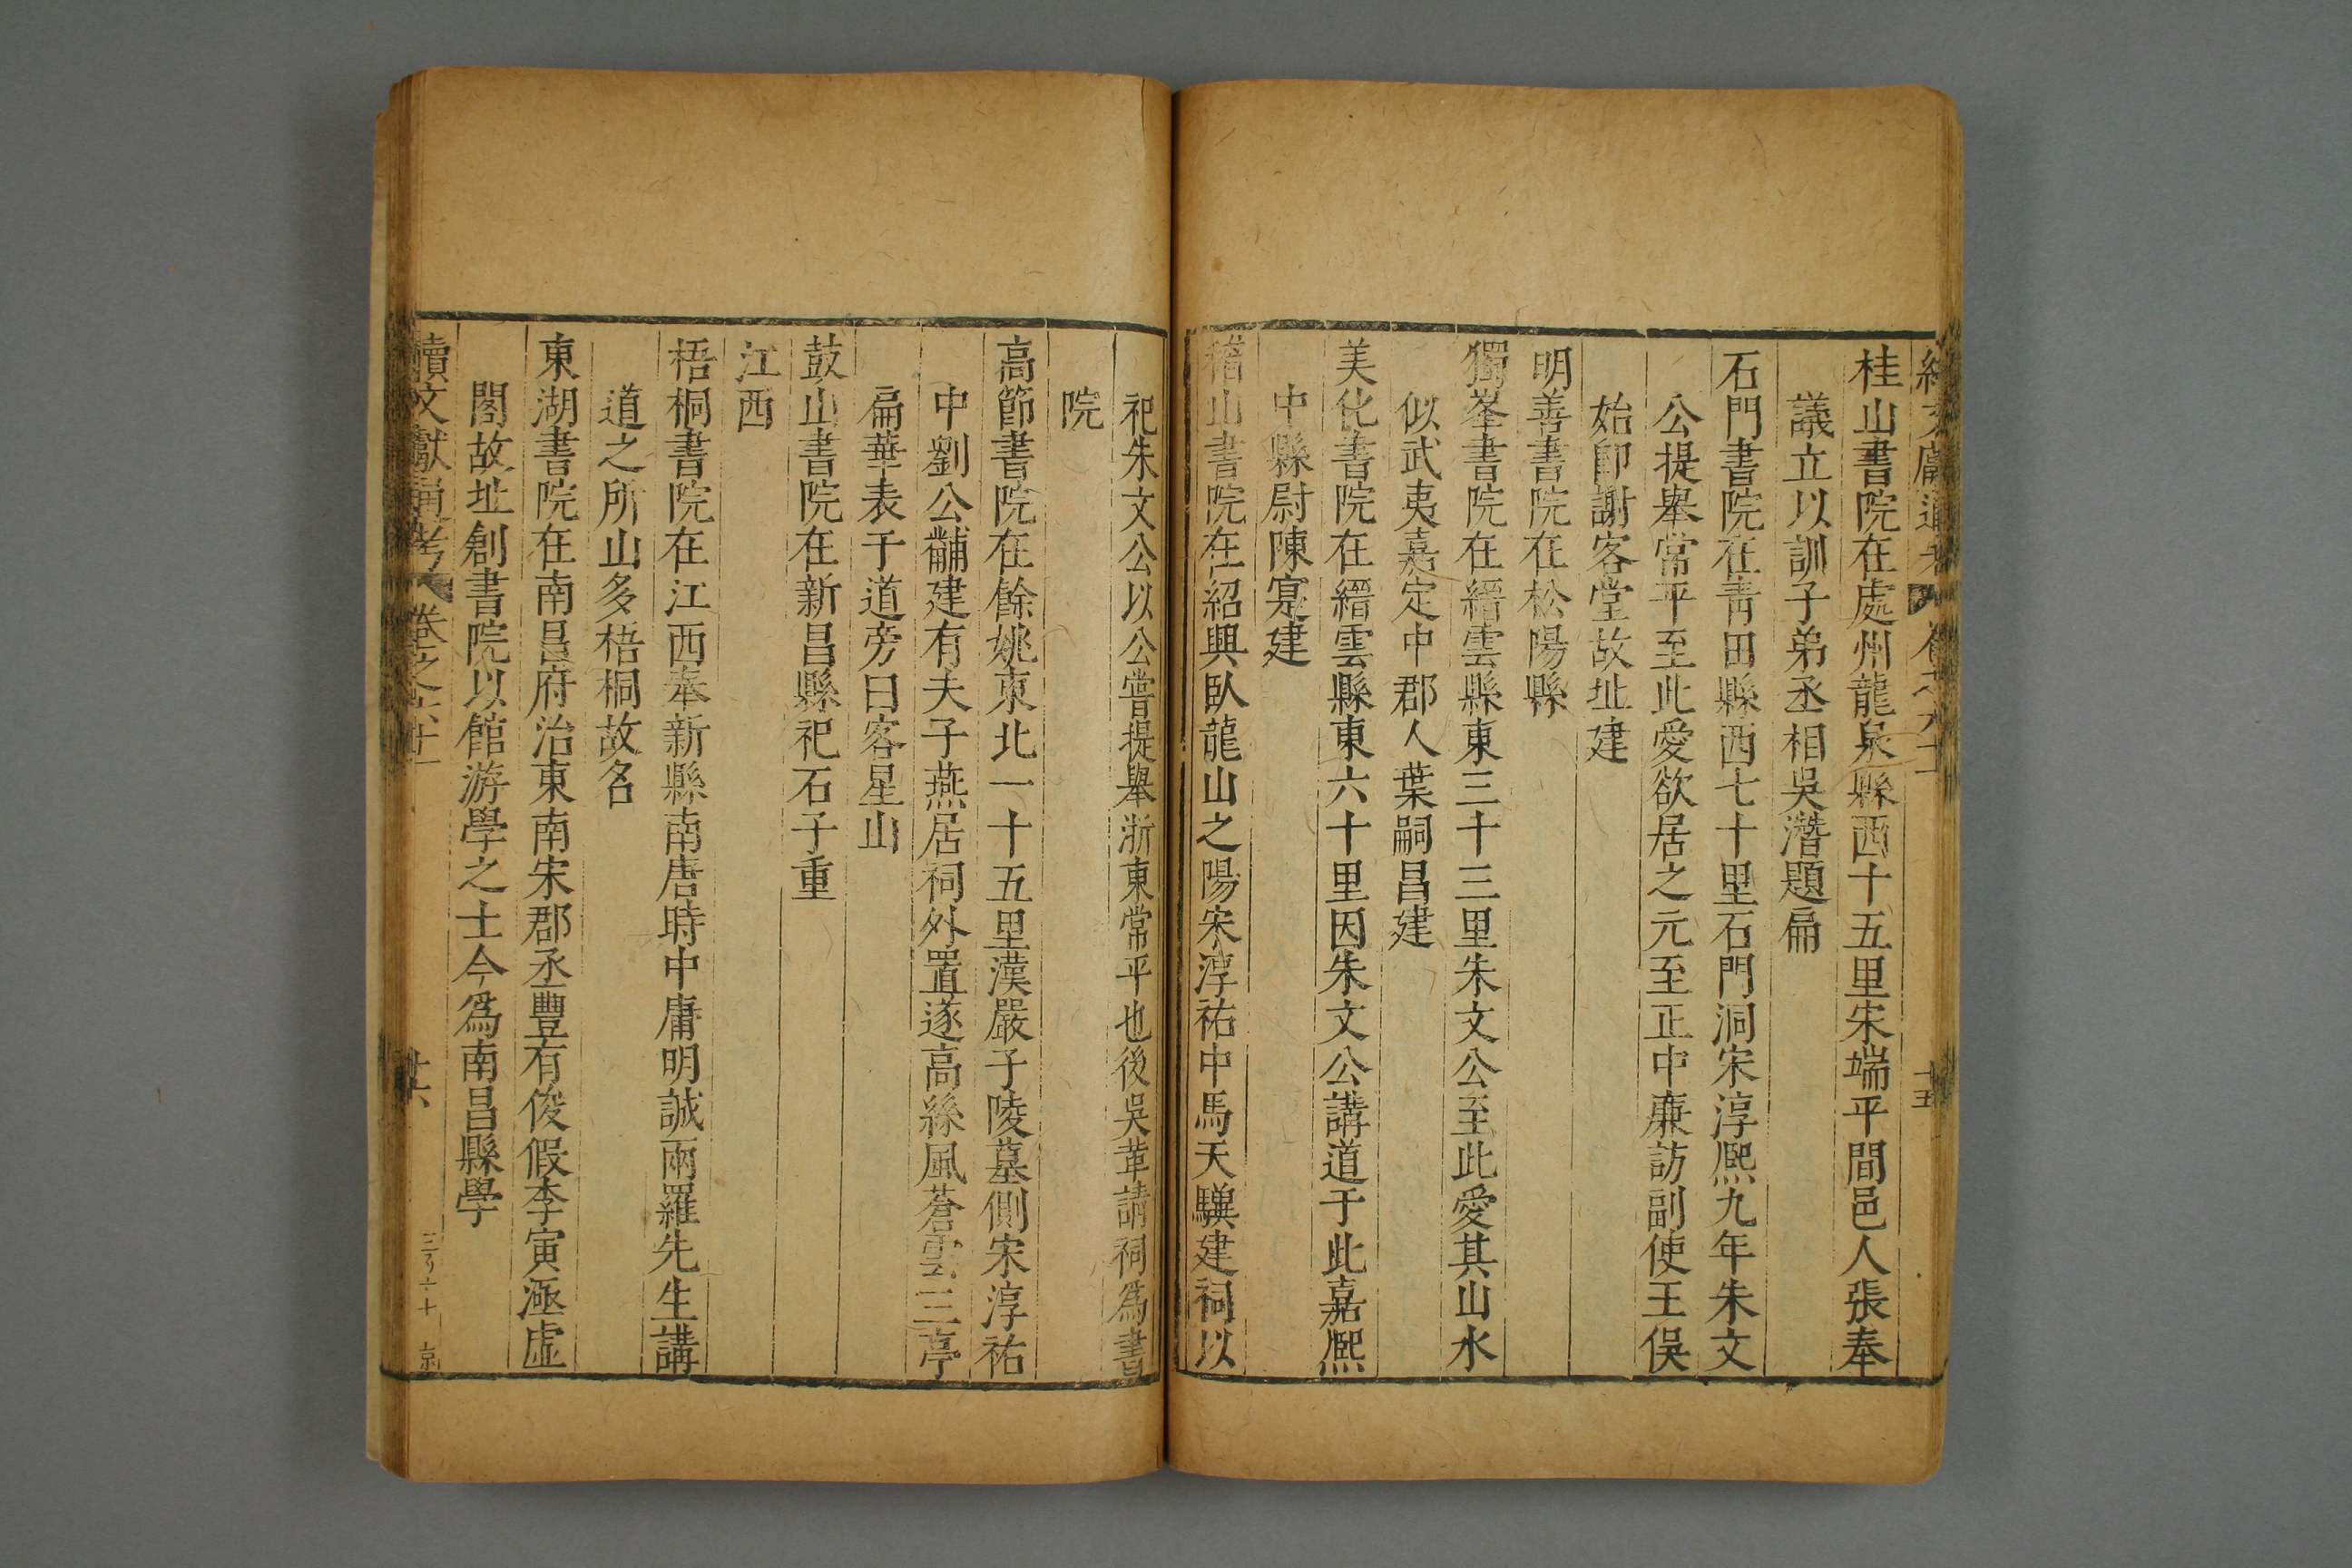 桂山書院在處州龍泉縣西十五里宋端平間邑人張奉
議立以訓子弟丞相吳潛題扁
石門書院在青田縣西七十里石門洞宋淳熙九年朱文
公提舉常平至此愛欲居之元至正中廉訪副使王俁
始卽謝客堂故址建
明善書院在松陽縣
獨峯書院在縉雲縣東三十三里朱文公至此愛其山水
似武夷嘉定中郡人葉嗣昌建
美化書院在縉雲縣東六十里因朱文公講道于此嘉熙
中縣尉陳寔建
稽山書院在紹興臥龍山之陽宋淳祐中馬天驥建祠以
祀朱文公以公嘗提舉浙東常平也後吳革請祠爲書
院
高節書院在餘姚東北一十五里漢嚴子陵墓側宋淳祐
中劉公黼建有夫子燕居祠外置遂高絲風蒼雲三亭
扁華表于道旁曰客星山
鼓山書院在新昌縣祀石子重
江西
梧桐書院在江西奉新縣南唐時中庸明誠兩羅先生講
道之所山多梧桐故名
東湖書院在南昌府治東南宋郡丞豐有俊假李寅涵虛
閣故址創書院以館游學之士今爲南昌縣學
續文獻通考 卷之六十一 十六